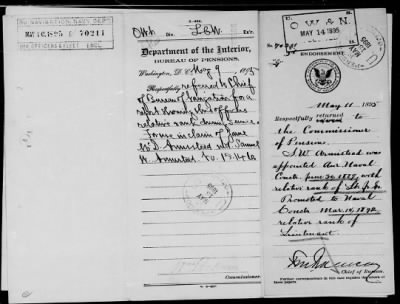 BU. NAVIGATION, NAVY DEPT.
MAY 10, 1895 70211
FOR OFFICERS & FLEET ENCL.
O.W.& Div. L.C.W. Ex'r.
Department of the Interior,
BUREAU OF PENSIONS,
Washington, D. C., May 9, 1895
Respectfully referred to Chief
of Bureau of Navigation for a
report showing his official
relative rank during service.
in claim of Jane
McD. Armistead wid. Samuel
W. Armistead
Commissioner.
U.
O. W & N.
MAY 14 1895
ENDORSEMENT.
May 11 1895
Respectfully returned to
the Commissioner
of Pensions.
S. W. Armistead was
appointed Ass. Naval
Constr. June 30, 1888, with
relative rank of Lt. j.g.
Promoted to Naval
Constr. Mar. 15, 1892,
relative rank of
Lieutenant.
Chief of Bureau.
Further correspondence in this case requires the above